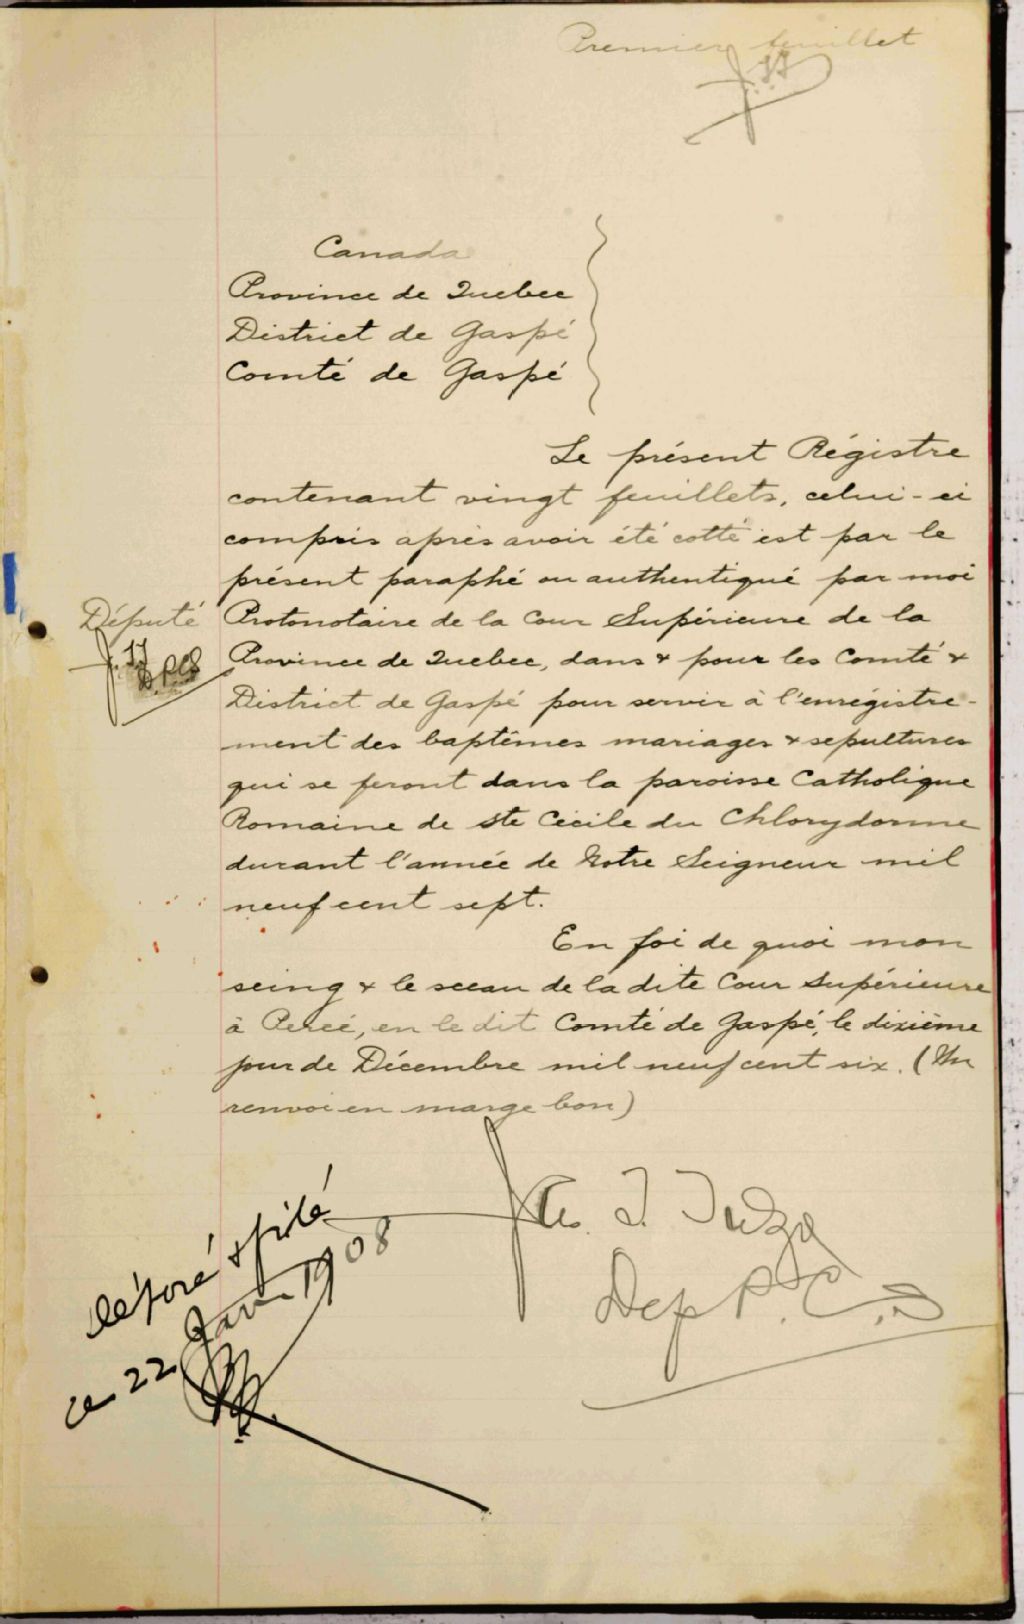 Premier feuillet
Canada
Province de Quebec
District de Gaspé
Comté de Gaspé
Le présent Régistre
contenant vingt feuillets, celui-ci
compris après avoir été cotté est par le
présent paraphé ou authentiqué par moi
Député
Protonotaire de la Cour Supérieure de la
Province de Quebec, dans & pour les Comté &
District de Gaspé pour servir à l'enrégistre-
ment des baptêmes mariages & sepultures
qui se feront dans la paroisse Catholique
Romaine de Ste Cécile du Chlorydorme
durant l'année de Notre Seigneur mil
neuf cent sept.
En foi de quoi mon
seing & le sceau de la dite Cour Supérieure
à Percé, en le dit Comté de Gaspé, le dixième
jour de Décembre mil neuf cent six. (Un
renvoi en marge bon)
Dep P.C.S
déposé & filé
ce 22 Janv 1908